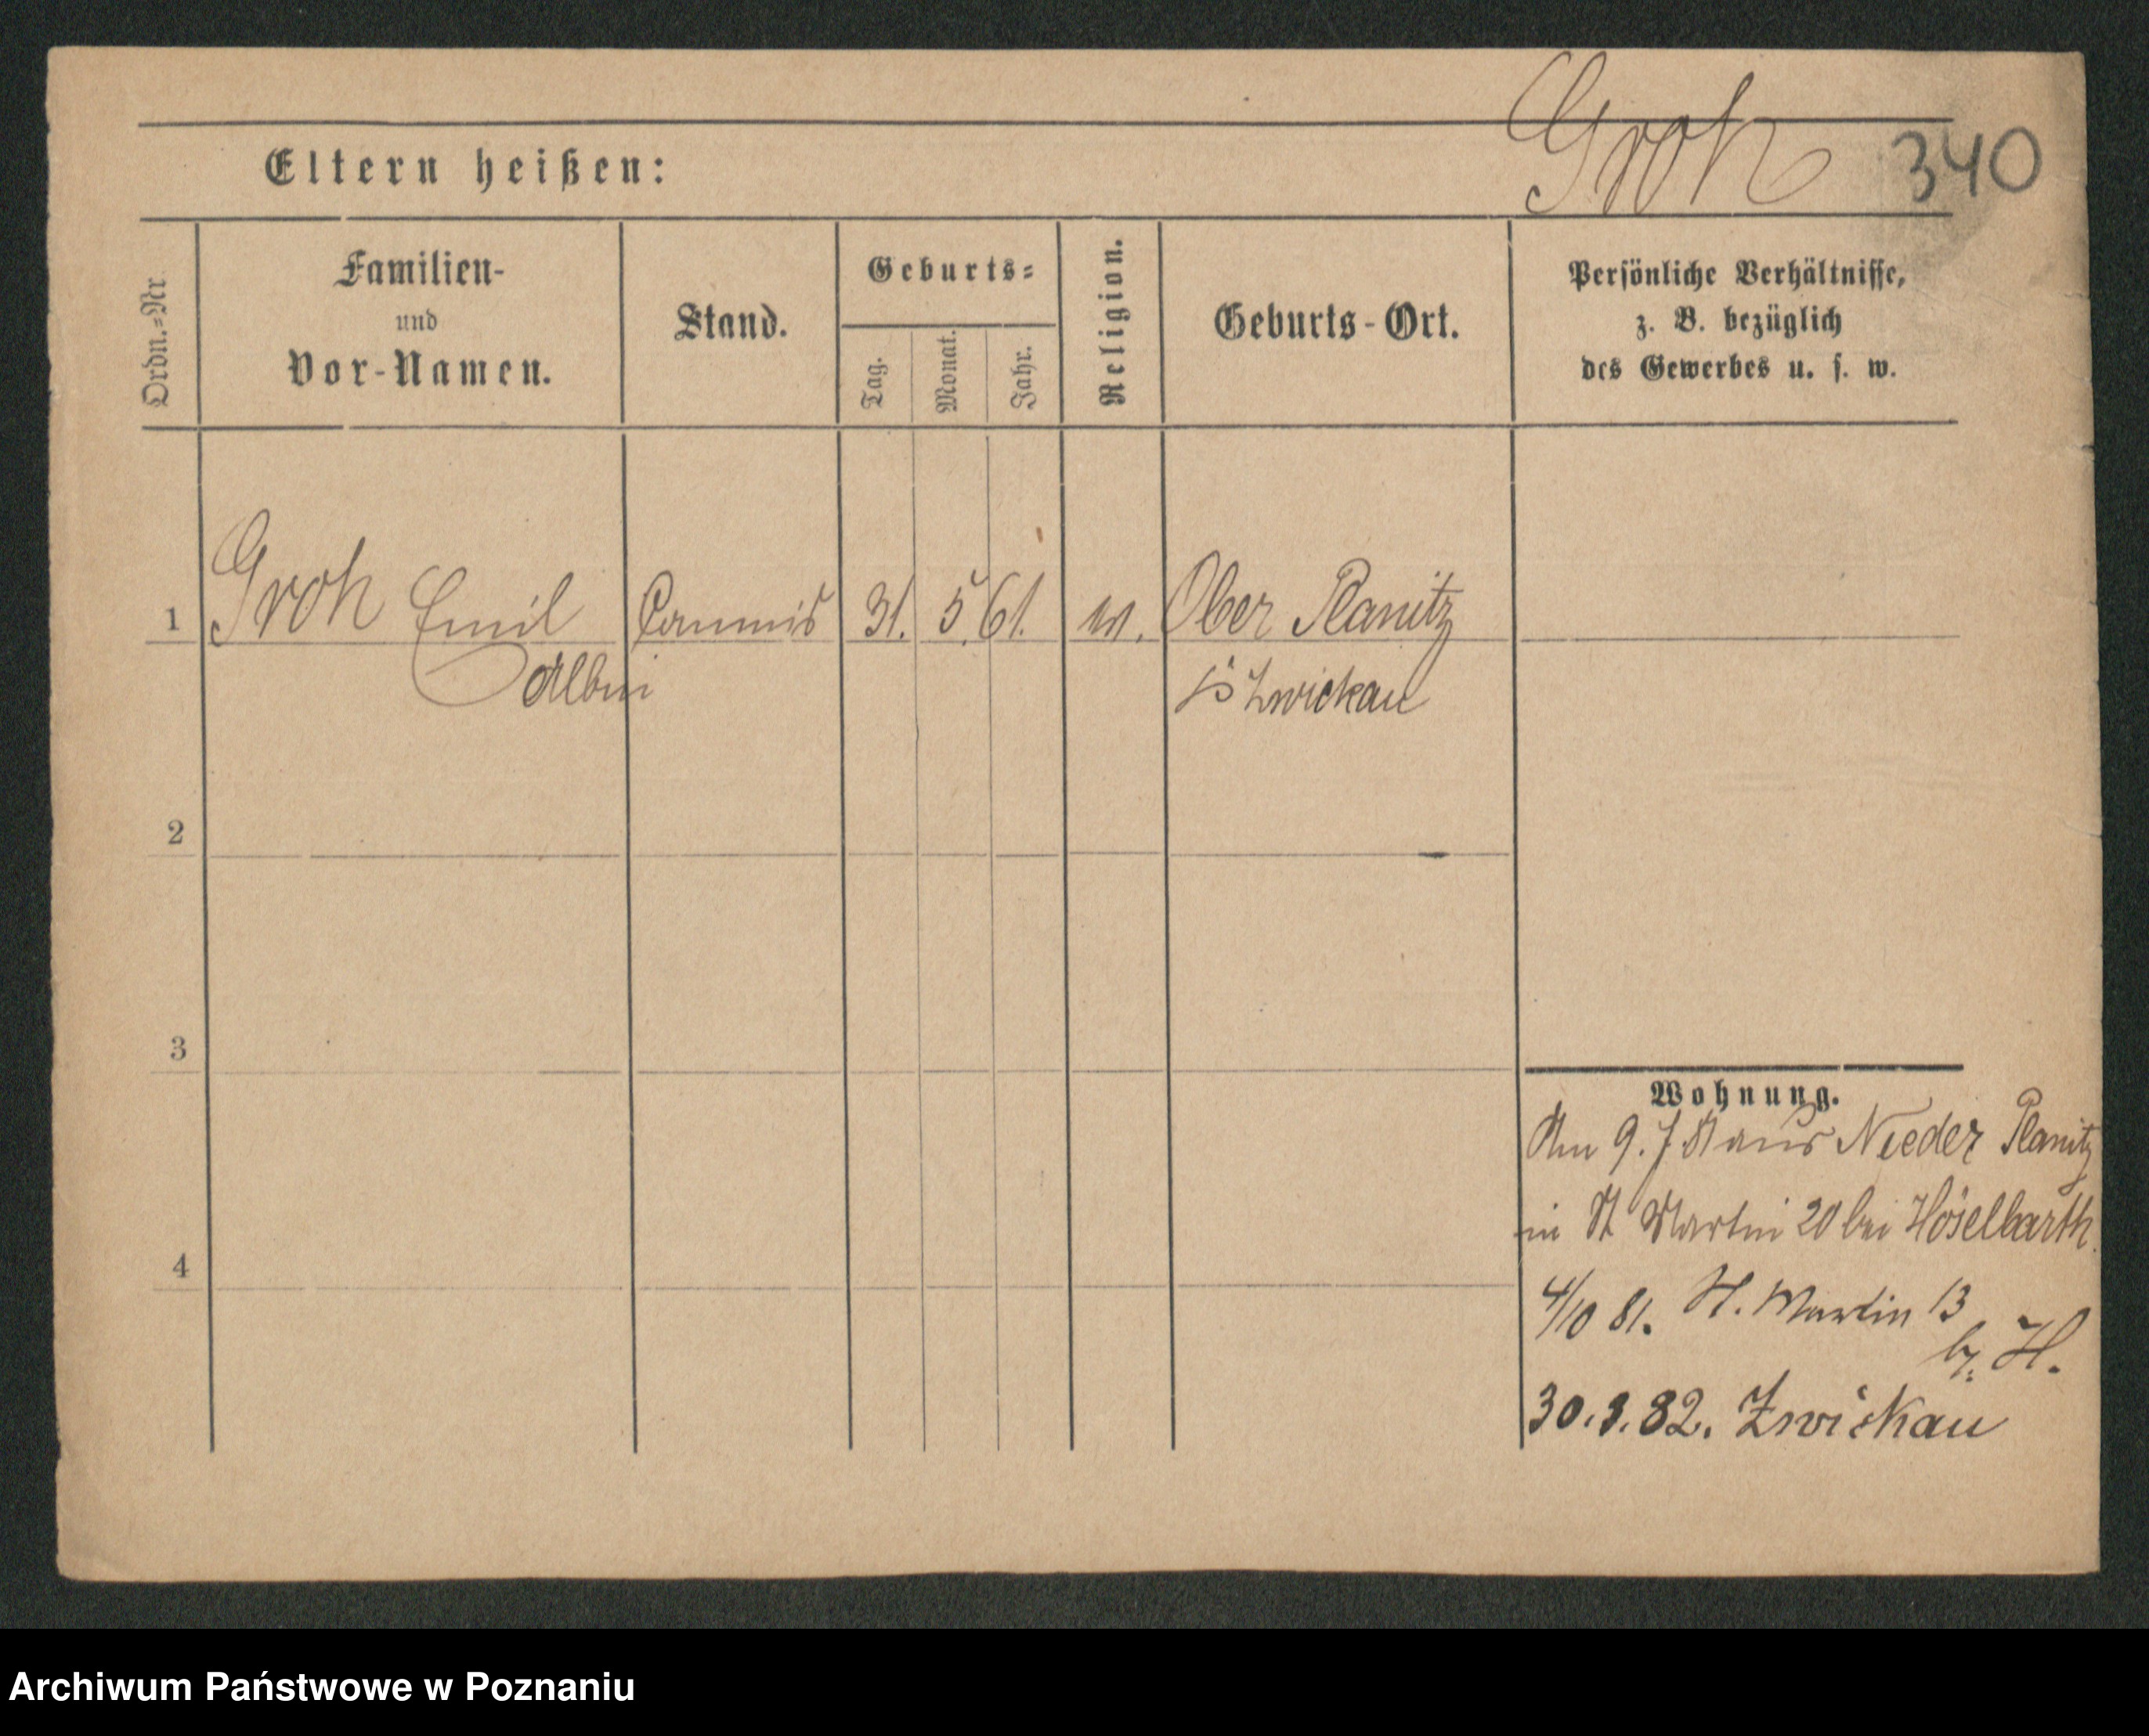 Groh 340
Eltern heißen:
Ordn.-Nr
Familien-
und
Vor-Namen.
Stand.
Geburts-
Tag.
Monat.
Jahr.
Religion.
Geburts-Ort.
Persönliche Verhältnisse,
z. B. bezüglich
des Gewerbes u. s. w.
1 Groh Emil Commis 31. 5. 61. Ober Planitz
Albin Zwickau
2
3
4
Wohnung.
Am 9. aus Nieder Planitz
in St Martin 20 bei Höselbarth.
4/10 81. St. Martin 13
b. H.
30.3.82. Zwickau
Archiwum Państwowe w Poznaniu